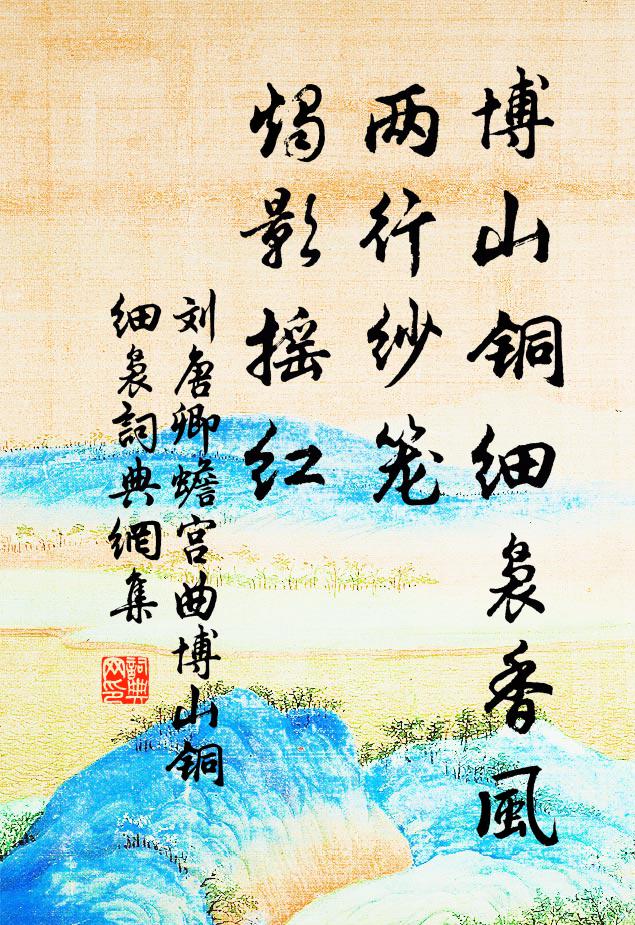 博山铜细袅香風
两行纱笼
烛影摇红
刘唐卿蟾宫曲博山铜
细袅詞典網集
詞典
网印